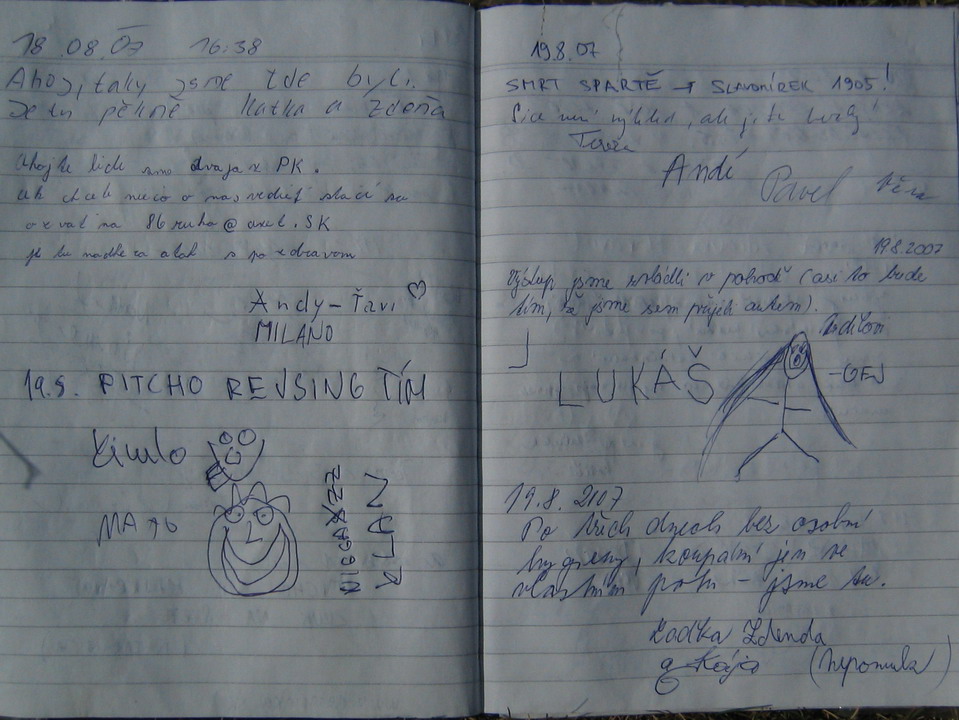 18.08.07 16:38
Ahoj, taky jsme zde byli.
Je tu pěkně Katka a Zdeňa
Ahojte lidé smo dvaja z PK.
ak chcete neico o nas vedieť stačí sa
ozvat na 86ruha@axel.SK
je tu nadhera a tak s pozdravom
Andy-Ťavi
MILANO
19.8. PITCHO REJSING TÝM
Kimlo
MATO
19.8.07
SMRT SPARTĚ → SLAVOMÍREK 1905!
Sice není výhled, ale je to hezký
Tereza
Andí
Pavel Věra
19.8.2007
Výstup jsme zvládli v pohodě (asi to bude
tím, že jsme sem přijeli autem).
LUKÁŠ
-GEJ
19.8.2107
Po třech dnech bez osobní
hygieny, koupání jen ve
vlastním potu – jsme tu.
Radka Zdenda
a Kája (Nepomuk)